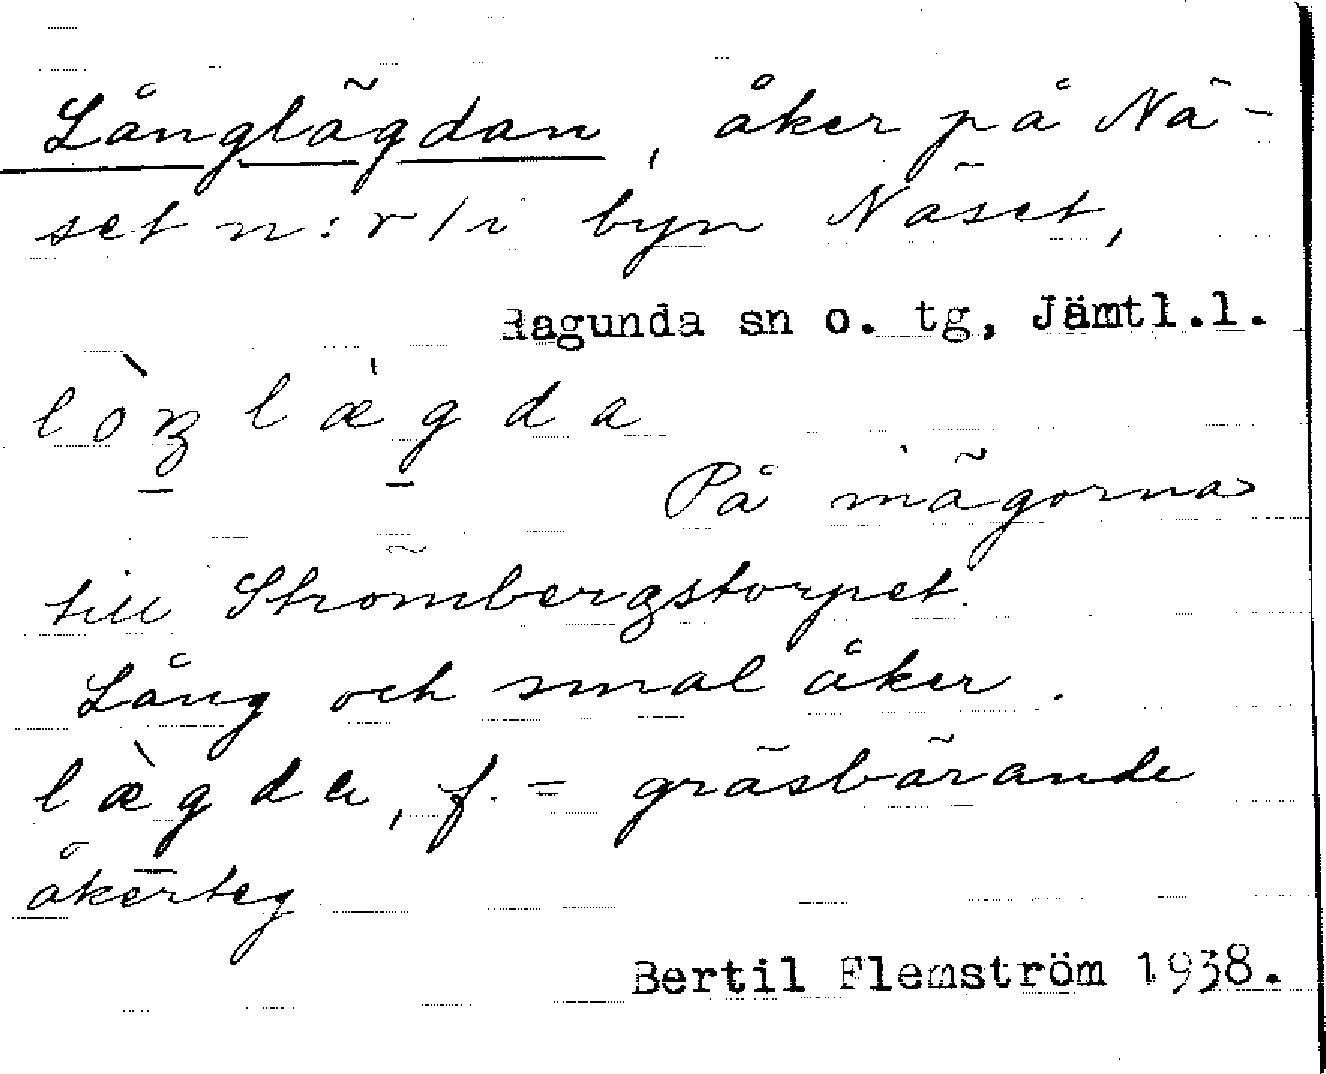 Långlägdan, åker på Nä-
set n:r 1 i byn Näset,
Ragunda sn o. tg, Jämtl.l.
lòŋlæ̀gda
På inägorna
till Strömbergstorpet.
Lång och smal åker.
læ̀gda, f. = gräsbärande
åkerteg
Bertil Flemström 1938.